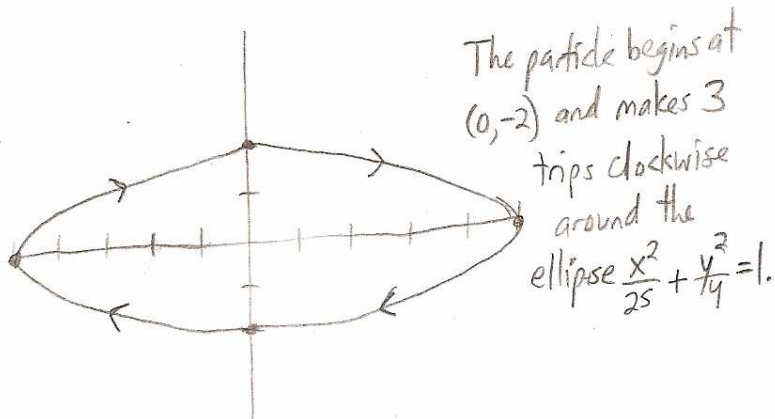 The particle begins at
(0,-2) and makes 3
trips clockwise
around the
ellipse x²/25 + y²/4 = 1.